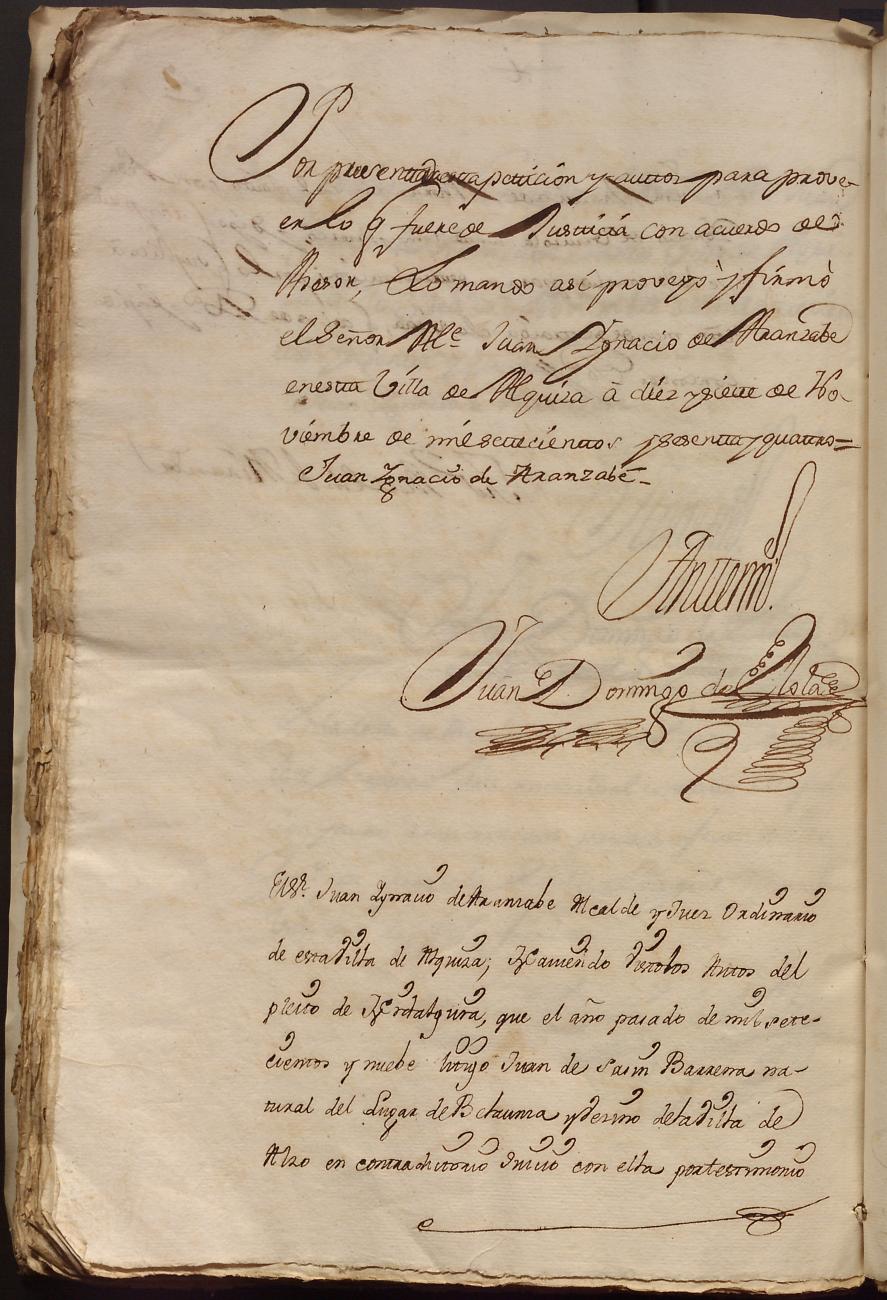 Por presentada esta peticion y auttos para prove-
er lo q fuere de Justicia con acuerdo de
Asesor, Lo mando asi proveyò y firmò
el Señor Alc.e Juan Ygnacio de Aranzabe
en esta Villa de Alquiza à diez y siette de No-
viembre de mil settecienttos y sesentta y quattro=
Juan Ygnacio de Aranzabe-
Antte mi
Juan Domingo de
El S.r Juan Ygnacio de Aranzabe Alcalde y Juez Ordinario
de esta Villa de Alquiza; Haviendo Visto los Autos del
pleito de Hidalguia, que el año pasado de mil sete-
cientos y nuebe litigo Juan de Sasin Barrena na-
tural del Lugar de Belaunza y Vezino de la Villa de
Alzo en contradictorio Juicio con esta por testimonio